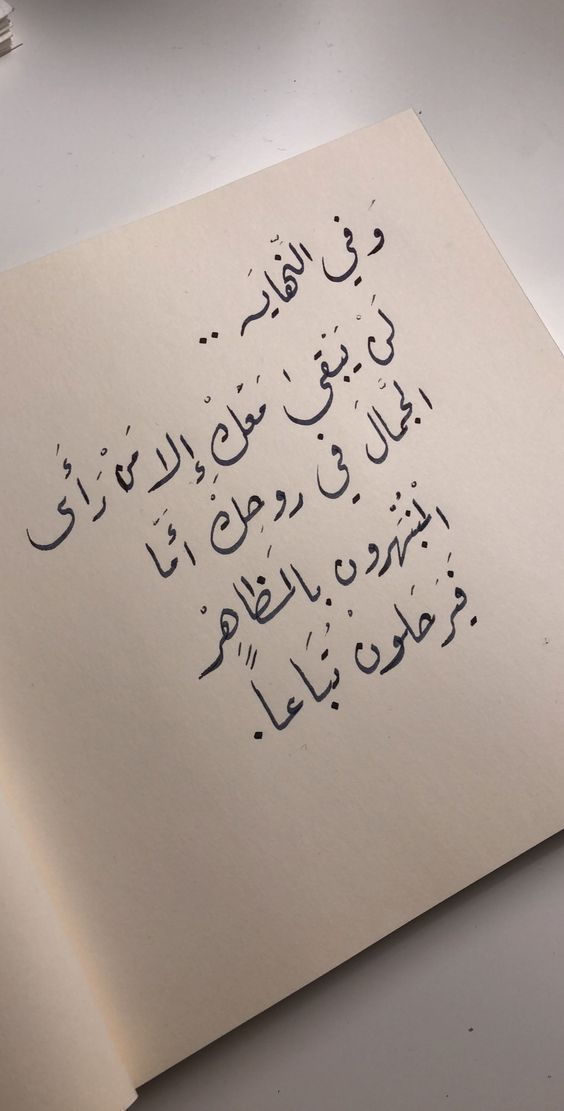 وَفي النّهايَه ..
لَنْ يَبْقىَ مَعَكْ إِلا مَنْ رَأَى
الجَّمالَ في روحِكْ أَمَّا
المْنبَهرون بالمَظَاهِرْ
فَيَرحَلونْ تُبَاعاً.